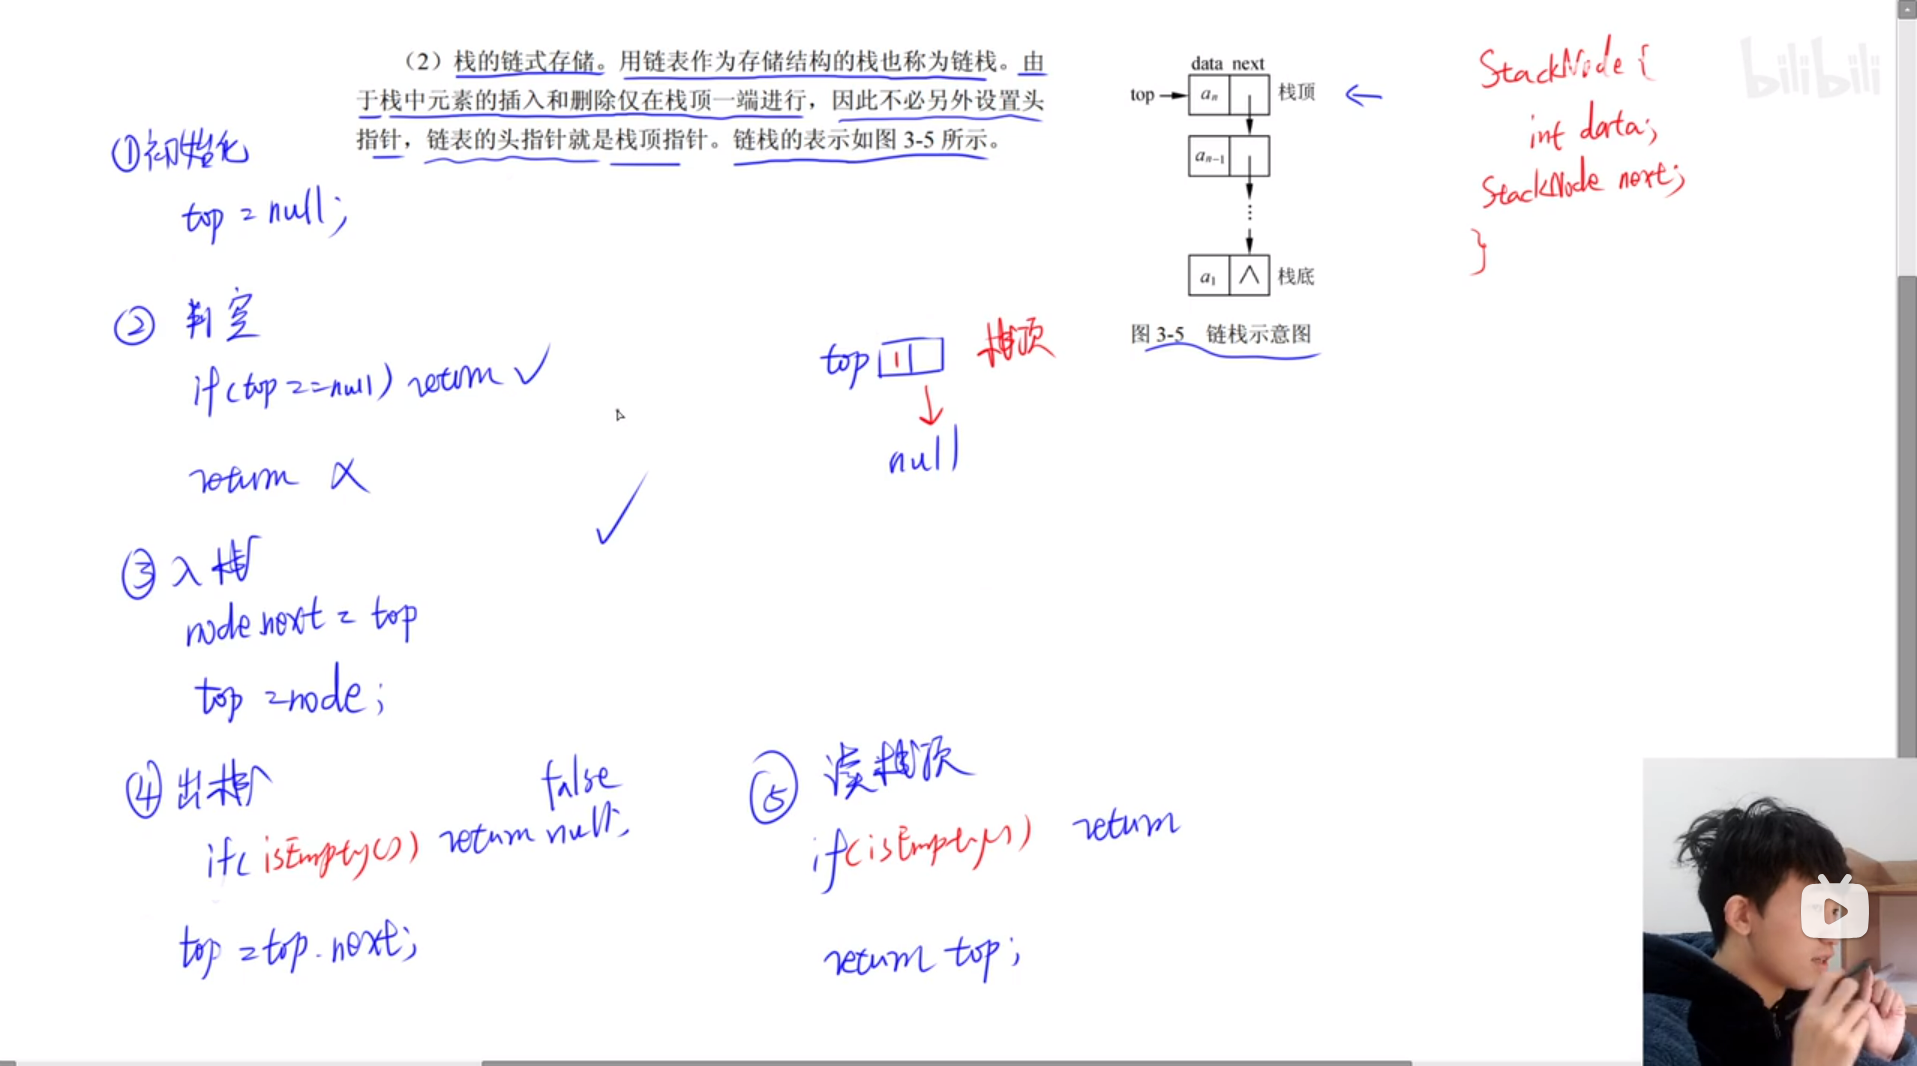 (2) 栈的链式存储。用链表作为存储结构的栈也称为链栈。由
于栈中元素的插入和删除仅在栈顶一端进行，因此不必另外设置头
指针，链表的头指针就是栈顶指针。链栈的表示如图 3-5 所示。
data next
top
aₙ
栈顶
aₙ₋₁
⋮
a₁ ∧
栈底
图 3-5 链栈示意图
StackNode {
int data;
StackNode next;
}
bilibili
①初始化
top = null;
② 判空
if(top == null) return ✓
return ×
✓
top 1 栈顶
↓
null
③ 入栈
node.next = top
top = node;
④ 出栈
false
if( isEmpty()) return null;
top = top.next;
⑤ 读栈顶
if(isEmpty()) return
return top;